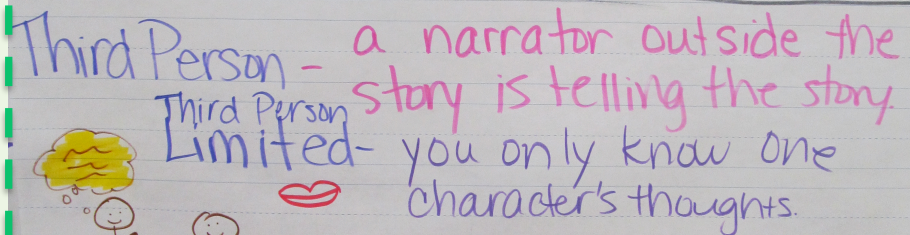 Third Person - a narrator outside the
story is telling the story.
Third Person
Limited- you only know one
character's thoughts.